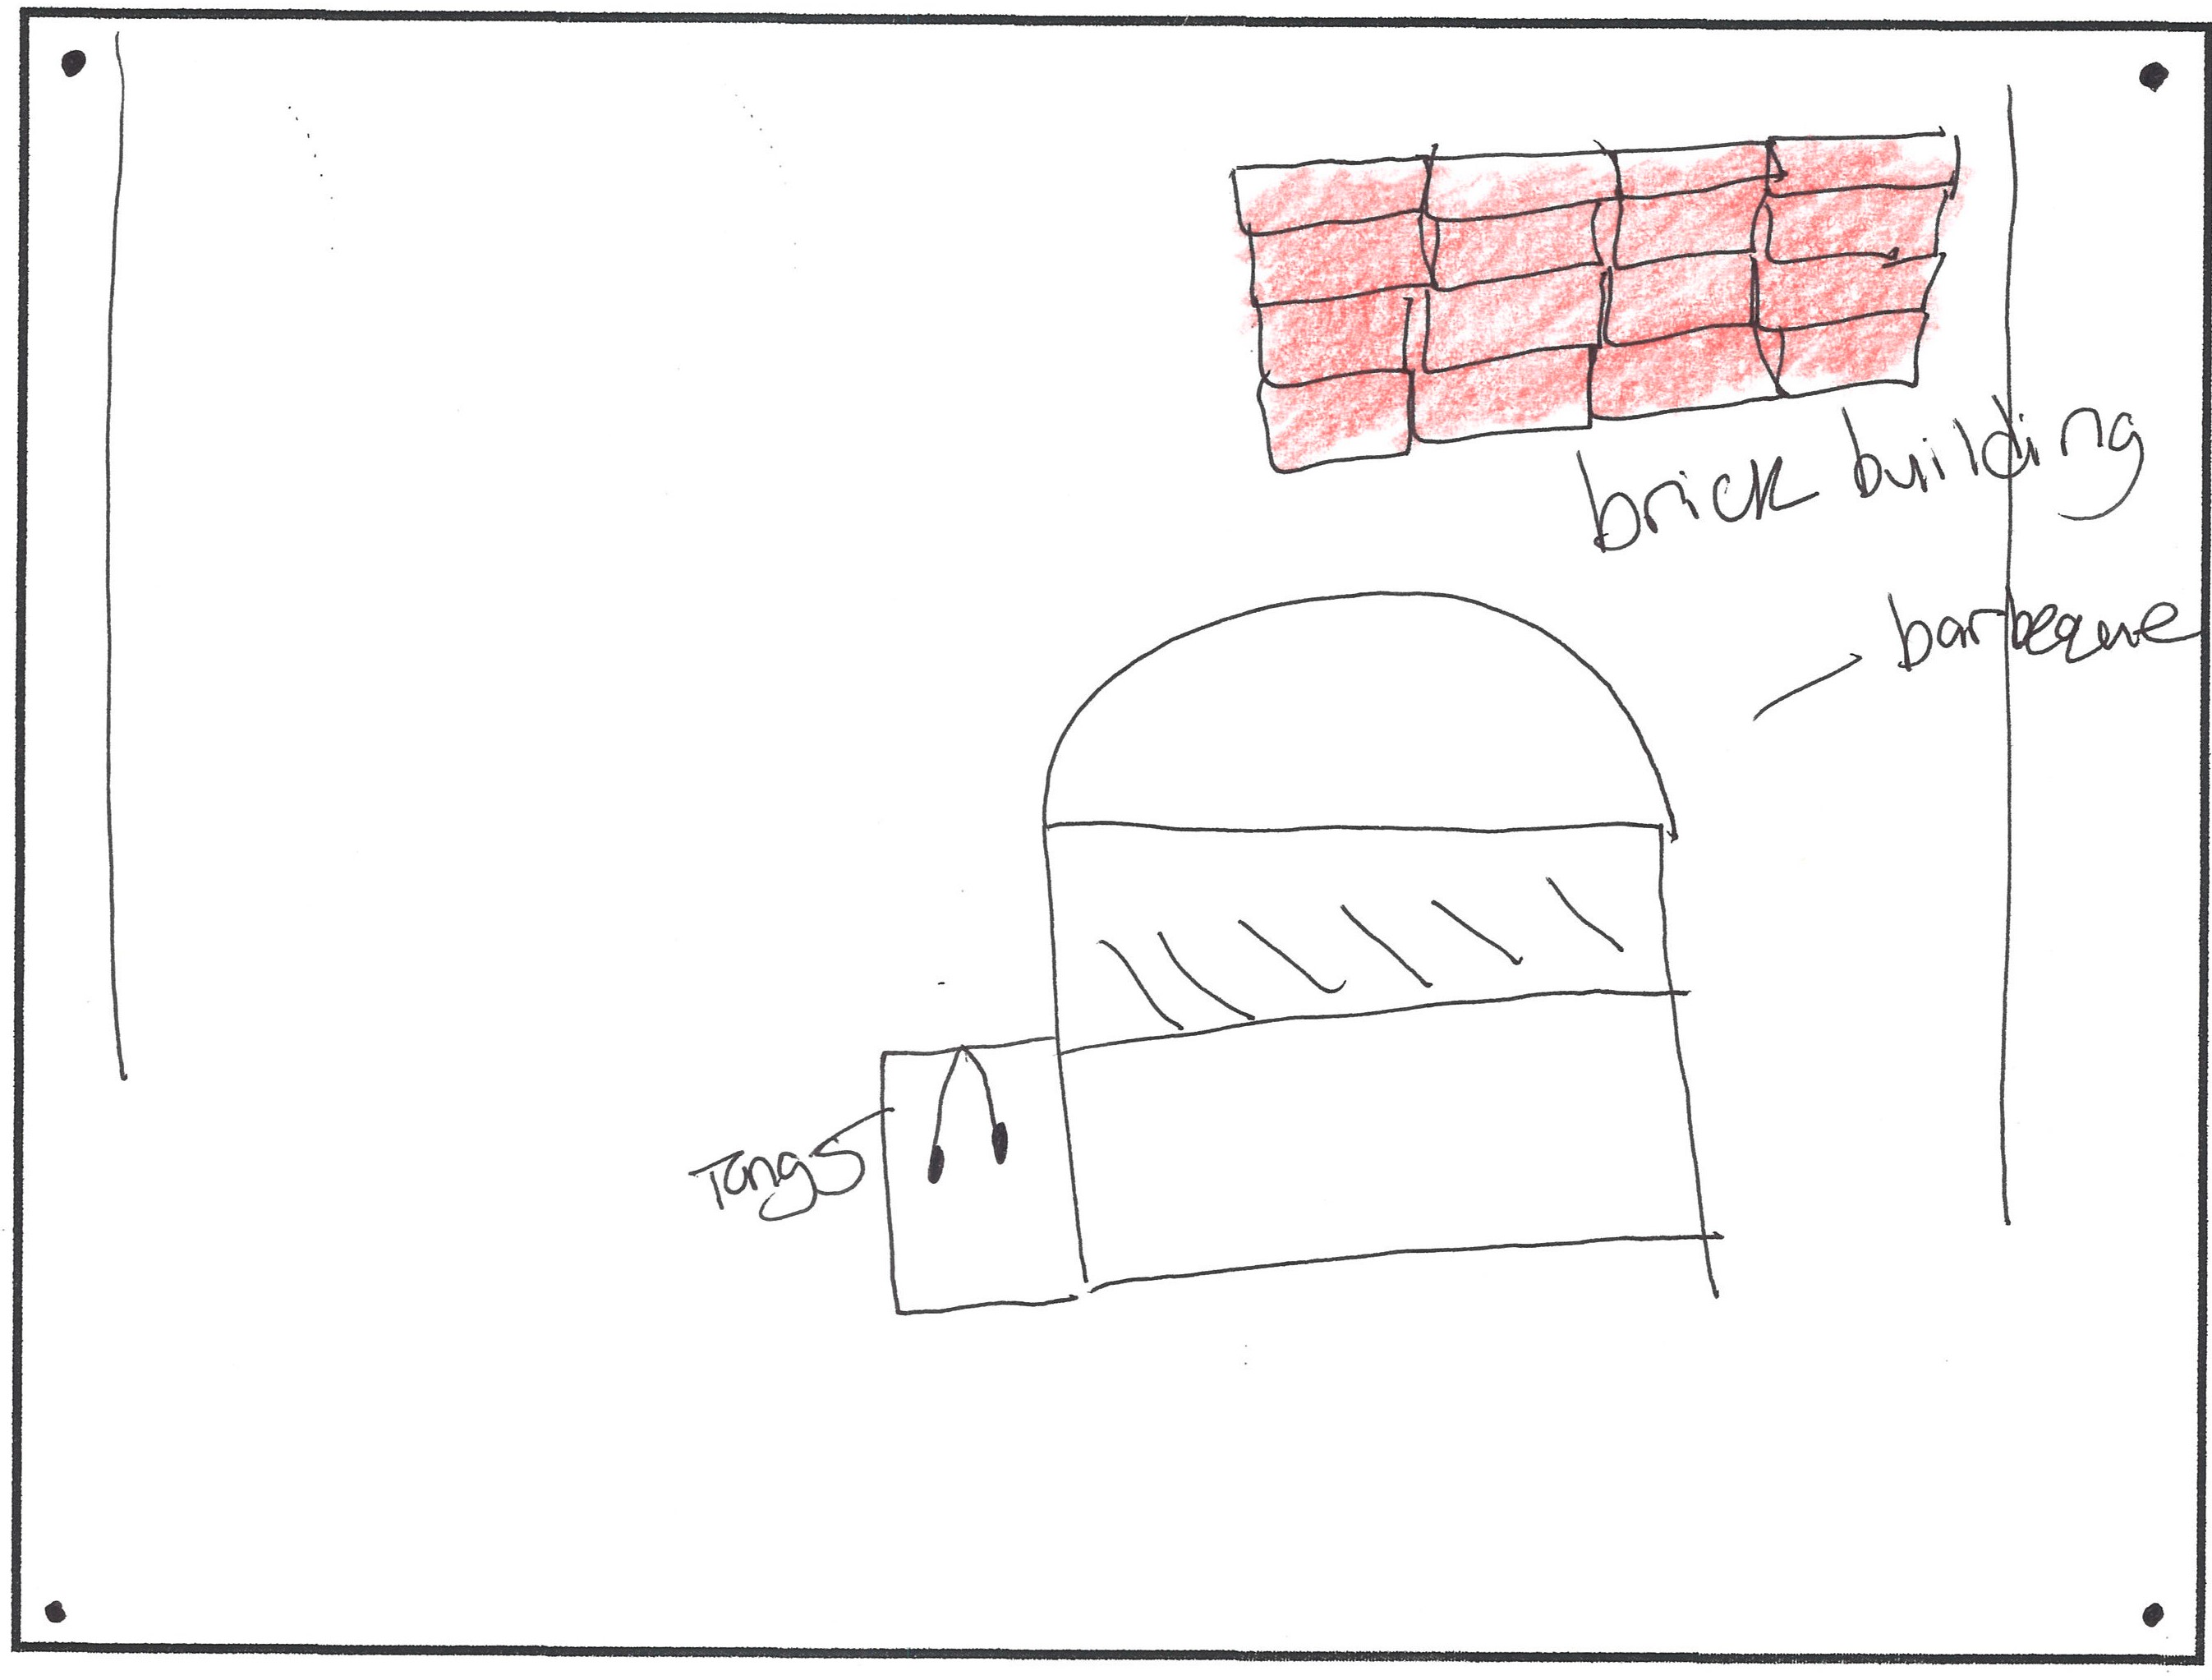 brick building
barbeque
Tongs